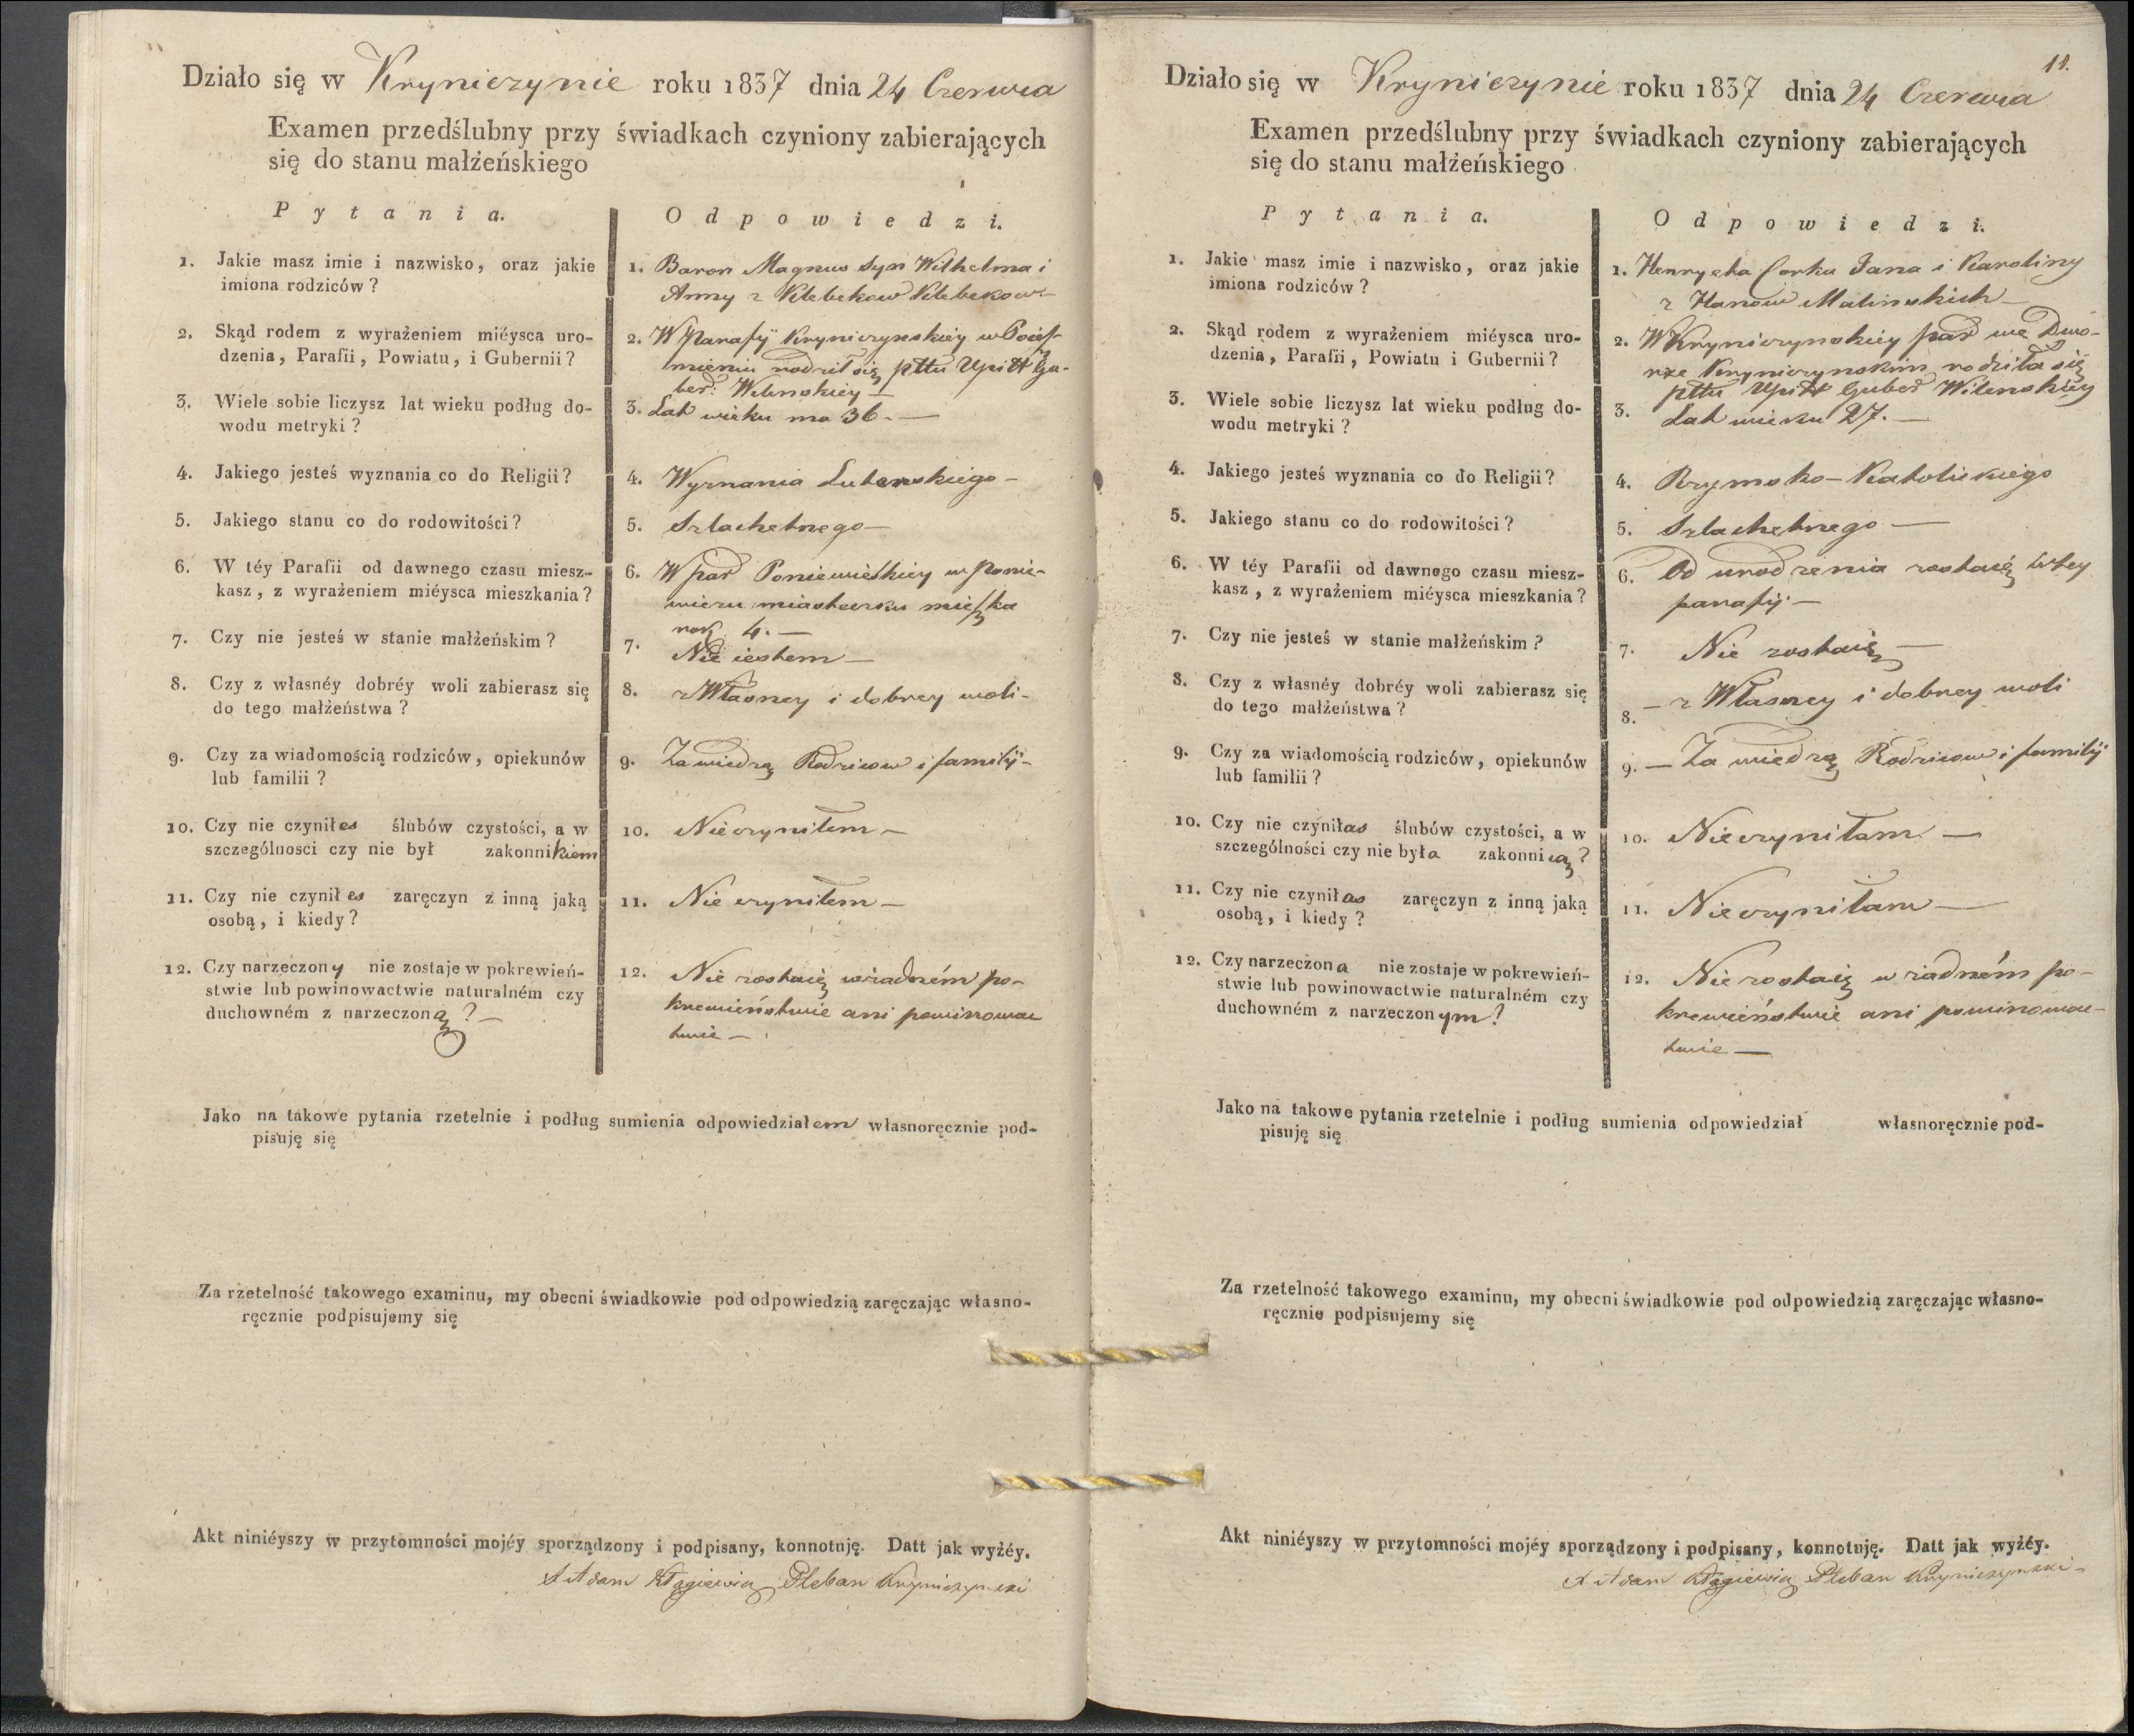 Działo się w Kryniczynie roku 1837 dnia 24 Czerwca
Examen przedślubny przy świadkach czyniony zabierających
się do stanu małżeńskiego
Pytania.
Odpowiedzi.
1. Jakie masz imie i nazwisko, oraz jakie
imiona rodziców?
1. Baron Magnus Syn Wilhelma i
Anny z Klebekow Klebekow—
2. Skąd rodem z wyrażeniem miéysca uro-
dzenia, Parafii, Powiatu, i Gubernii?
2. W Parafij Kryniczynskiey w
mieniu rodził się pttu Upitt Gu-
ber: Wilenskiey—
3. Wiele sobie liczysz lat wieku podług do-
wodu metryki?
3. Lat wieku ma 36.—
4. Jakiego jesteś wyznania co do Religii?
4. Wyznania Luterskiego—
5. Jakiego stanu co do rodowitości?
5. Szlachetnego—
6. W téy Parafii od dawnego czasu miesz-
kasz, z wyrażeniem miéysca mieszkania?
6. W par Poniewieskiey w Ponie-
wiezu miasteczku mieszka
rok 4.—
7. Czy nie jesteś w stanie małżeńskim?
7. Nie iestem—
8. Czy z własnéy dobréy woli zabierasz się
do tego małżeństwa?
8. z Własney i dobrey woli-
9. Czy za wiadomością rodziców, opiekunów
lub familii?
9. Za wiedzą Rodzicow i familij-
10. Czy nie czyniłes ślubów czystości, a w
szczególnosci czy nie był zakonnikiem
10. Nieczyniłem—
11. Czy nie czyniłes zaręczyn z inną jaką
osobą, i kiedy?
11. Nie czyniłem—
12. Czy narzeczony nie zostaje w pokrewień-
stwie lub powinowactwie naturalném czy
duchowném z narzeczoną?—
12. Nie zostaię w żadném po-
krewieństwie ani powinowac
twie—
Jako na takowe pytania rzetelnie i podług sumienia odpowiedziałem własnoręcznie pod-
pisuję się
Za rzetelność takowego examinu, my obecni świadkowie pod odpowiedzią zaręczając własno-
ręcznie podpisujemy się
Akt niniéyszy w przytomności mojéy sporządzony i podpisany, konnotuję. Datt jak wyżéy.
X Adam Kłągiewicz Pleban Kryniczynski
11.
Działo się w Kryniczynie roku 1837 dnia 24 Czerwca
Examen przedślubny przy świadkach czyniony zabierających
się do stanu małżeńskiego
Pytania.
Odpowiedzi.
1. Jakie masz imie i nazwisko, oraz jakie
imiona rodziców?
1. Henryeta Corka Jana i Karoliny
z Hanow Malinskich—
2. Skąd rodem z wyrażeniem miéysca uro-
dzenia, Parafii, Powiatu i Gubernii?
2. W Kryniczynskiey par we Dwo-
rze Kryniczynskim rodziła się
pttu Upitt Guber Wilenskiey
3. Wiele sobie liczysz lat wieku podług do-
wodu metryki?
3. Lat wieku 27.—
4. Jakiego jesteś wyznania co do Religii?
4. Rzymsko-Katolickiego
5. Jakiego stanu co do rodowitości?
5. Szlachetnego—
6. W téy Parafii od dawnego czasu miesz-
kasz, z wyrażeniem miéysca mieszkania?
6. Od urodzenia zostaię wtey
parafij—
7. Czy nie jesteś w stanie małżeńskim?
7. Nie zostaię—
8. Czy z własnéy dobréy woli zabierasz się
do tego małżeństwa?
8. — z Własney i dobrey woli
9. Czy za wiadomością rodziców, opiekunów
lub familii?
9. — Za wiedzą Rodzicow i familij
10. Czy nie czyniłas ślubów czystości, a w
szczególności czy nie była zakonnicą?
10. Nieczyniłam—
11. Czy nie czyniłas zaręczyn z inną jaką
osobą, i kiedy?
11. Nieczyniłam—
12. Czy narzeczona nie zostaje w pokrewień-
stwie lub powinowactwie naturalném czy
duchowném z narzeczonym?
12. Nie zostaię w żadném po-
krewieństwie ani powinowac-
twie—
Jako na takowe pytania rzetelnie i podług sumienia odpowiedział własnoręcznie pod-
pisuję się
Za rzetelność takowego examinu, my obecni świadkowie pod odpowiedzią zaręczając własno-
ręcznie podpisujemy się
Akt niniéyszy w przytomności mojéy sporządzony i podpisany, konnotuję. Datt jak wyżéy.
X Adam Kłągiewicz Pleban Kryniczynski-